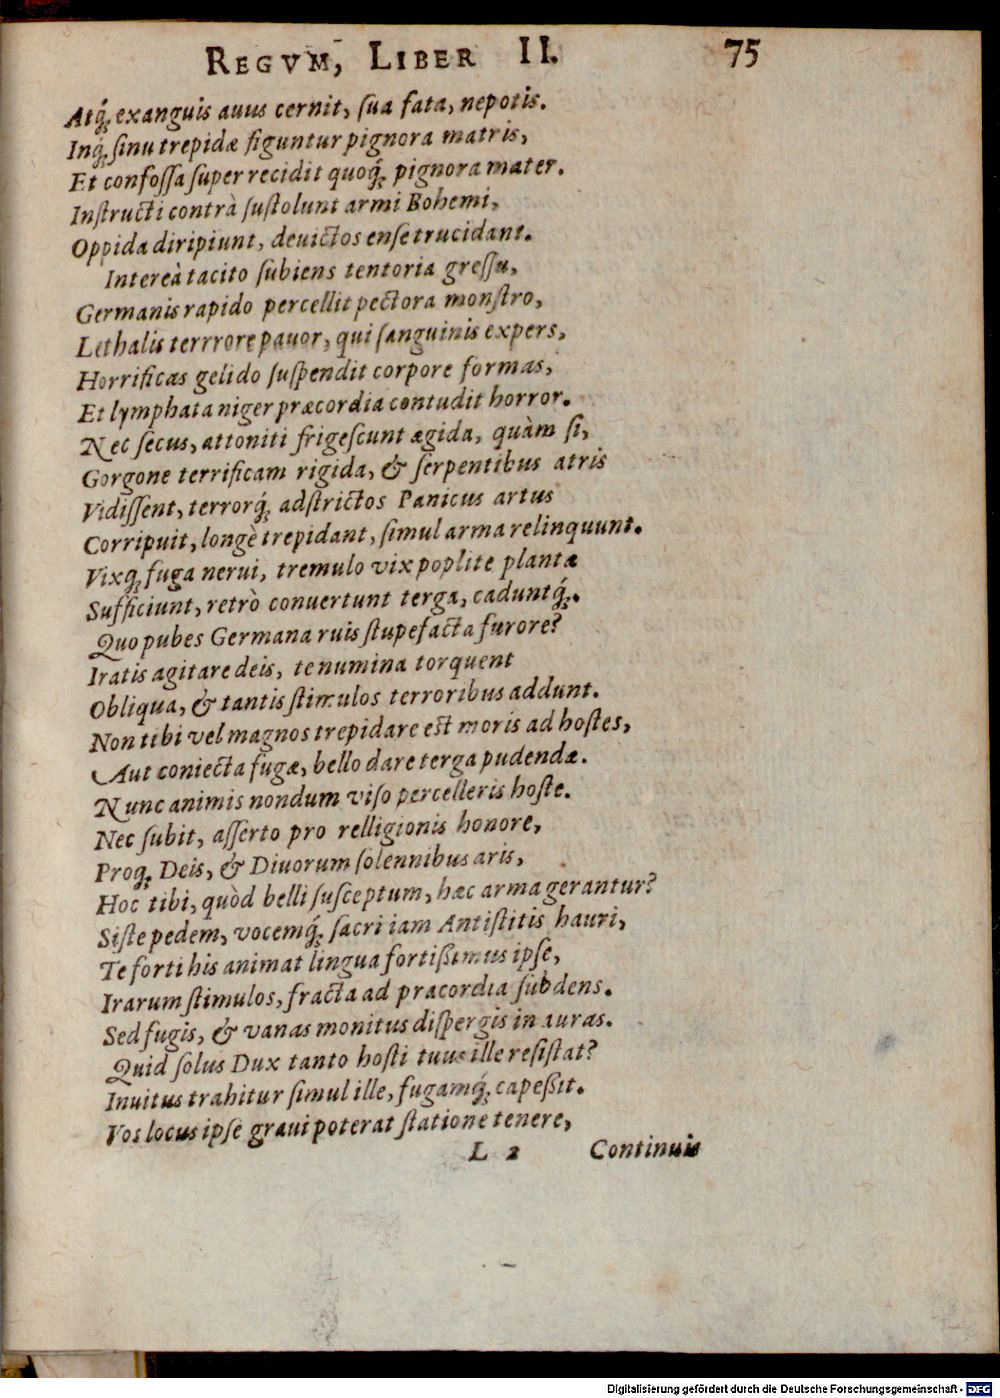 REGVM, LIBER II. 75
Atq́; exanguis auus cernit, ſua fata, nepotis.
Inq́; ſinu trepidæ figuntur pignora matris,
Et confoſſa ſuper recidit quoq́; pignora mater.
Inſtructi contrà ſuſtolunt armi Bohemi,
Oppida diripiunt, deuictos enſe trucidant.
Intereà tacito ſubiens tentoria greſſu,
Germanis rapido percellit pectora monſtro,
Lethalis terrrore pauor, qui ſanguinis expers,
Horrificas gelido ſuſpendit corpore formas,
Et lymphata niger præcordia contudit horror.
Nec ſecus, attoniti frigeſcunt ægida, quàm ſi,
Gorgone terrificam rigida, & ſerpentibus atris
Vidiſſent, terrorq́; adſtrictos Panicus artus
Corripuit, longè trepidant, ſimul arma relinquunt.
Vixq; fuga nerui, tremulo vix poplite plantæ
Sufficiunt, retrò conuertunt terga, caduntq́;.
Quo pubes Germana ruis ſtupefacta furore?
Iratis agitare deis, te numina torquent
Obliqua, & tantis ſtimulos terroribus addunt.
Non tibi vel magnos trepidare eſt moris ad hoſtes,
Aut coniecta fugæ, bello dare terga pudendæ.
Nunc animis nondum viſo percelleris hoſte.
Nec ſubit, aſſerto pro relligionis honore,
Proq; Deis, & Diuorum ſolennibus aris,
Hoc tibi, quòd belli ſuſceptum, hæc arma gerantur?
Siſte pedem, vocemq́; ſacri iam Antiſtitis hauri,
Te forti his animat lingua fortißimus ipſe,
Irarum ſtimulos, fracta ad præcordia ſubdens.
Sed fugis, & vanas monitus diſpergis in auras.
Quid ſolus Dux tanto hoſti tuus ille reſiſtat?
Inuitus trahitur ſimul ille, fugamq́; capeßit.
Vos locus ipſe graui poterat ſtatione tenere,
L 2 Continuis
Digitalisierung gefördert durch die Deutsche Forschungsgemeinschaft - DFG